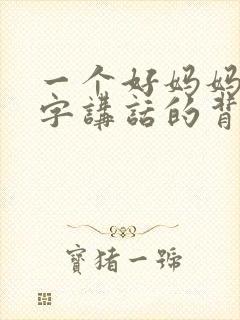 一个好妈妈
字講話的背
寶猪一號